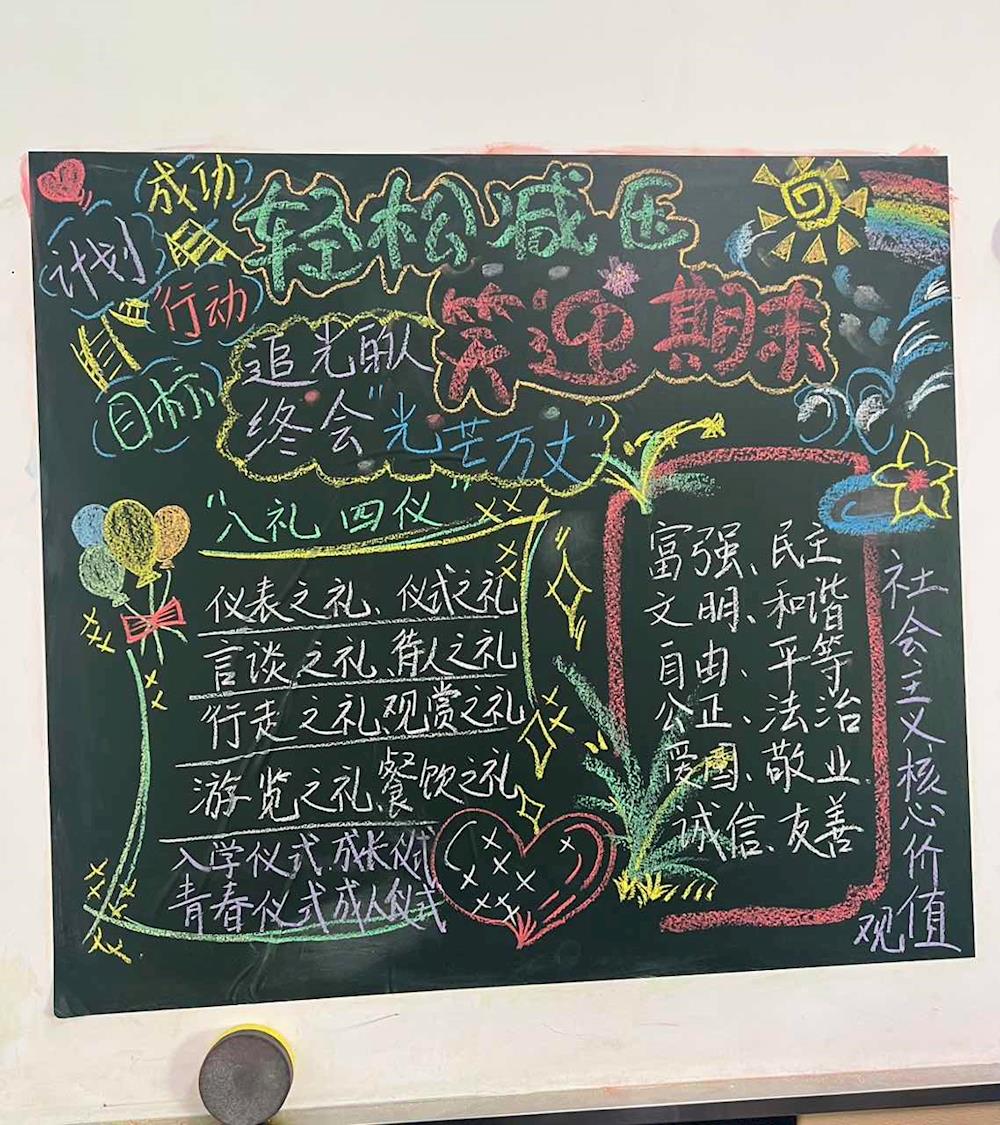 成功
计划
行动
目标
轻松减压
笑迎期末
追光的人
终会"光芒万丈"
"八礼四仪"
仪表之礼、仪式之礼
言谈之礼、待人之礼
行走之礼、观赏之礼
游览之礼、餐饮之礼
入学仪式、成长仪式
青春仪式成人仪式
富强、民主
文明、和谐
自由、平等
公正、法治
爱国、敬业
诚信、友善
社会主义核心价值
观